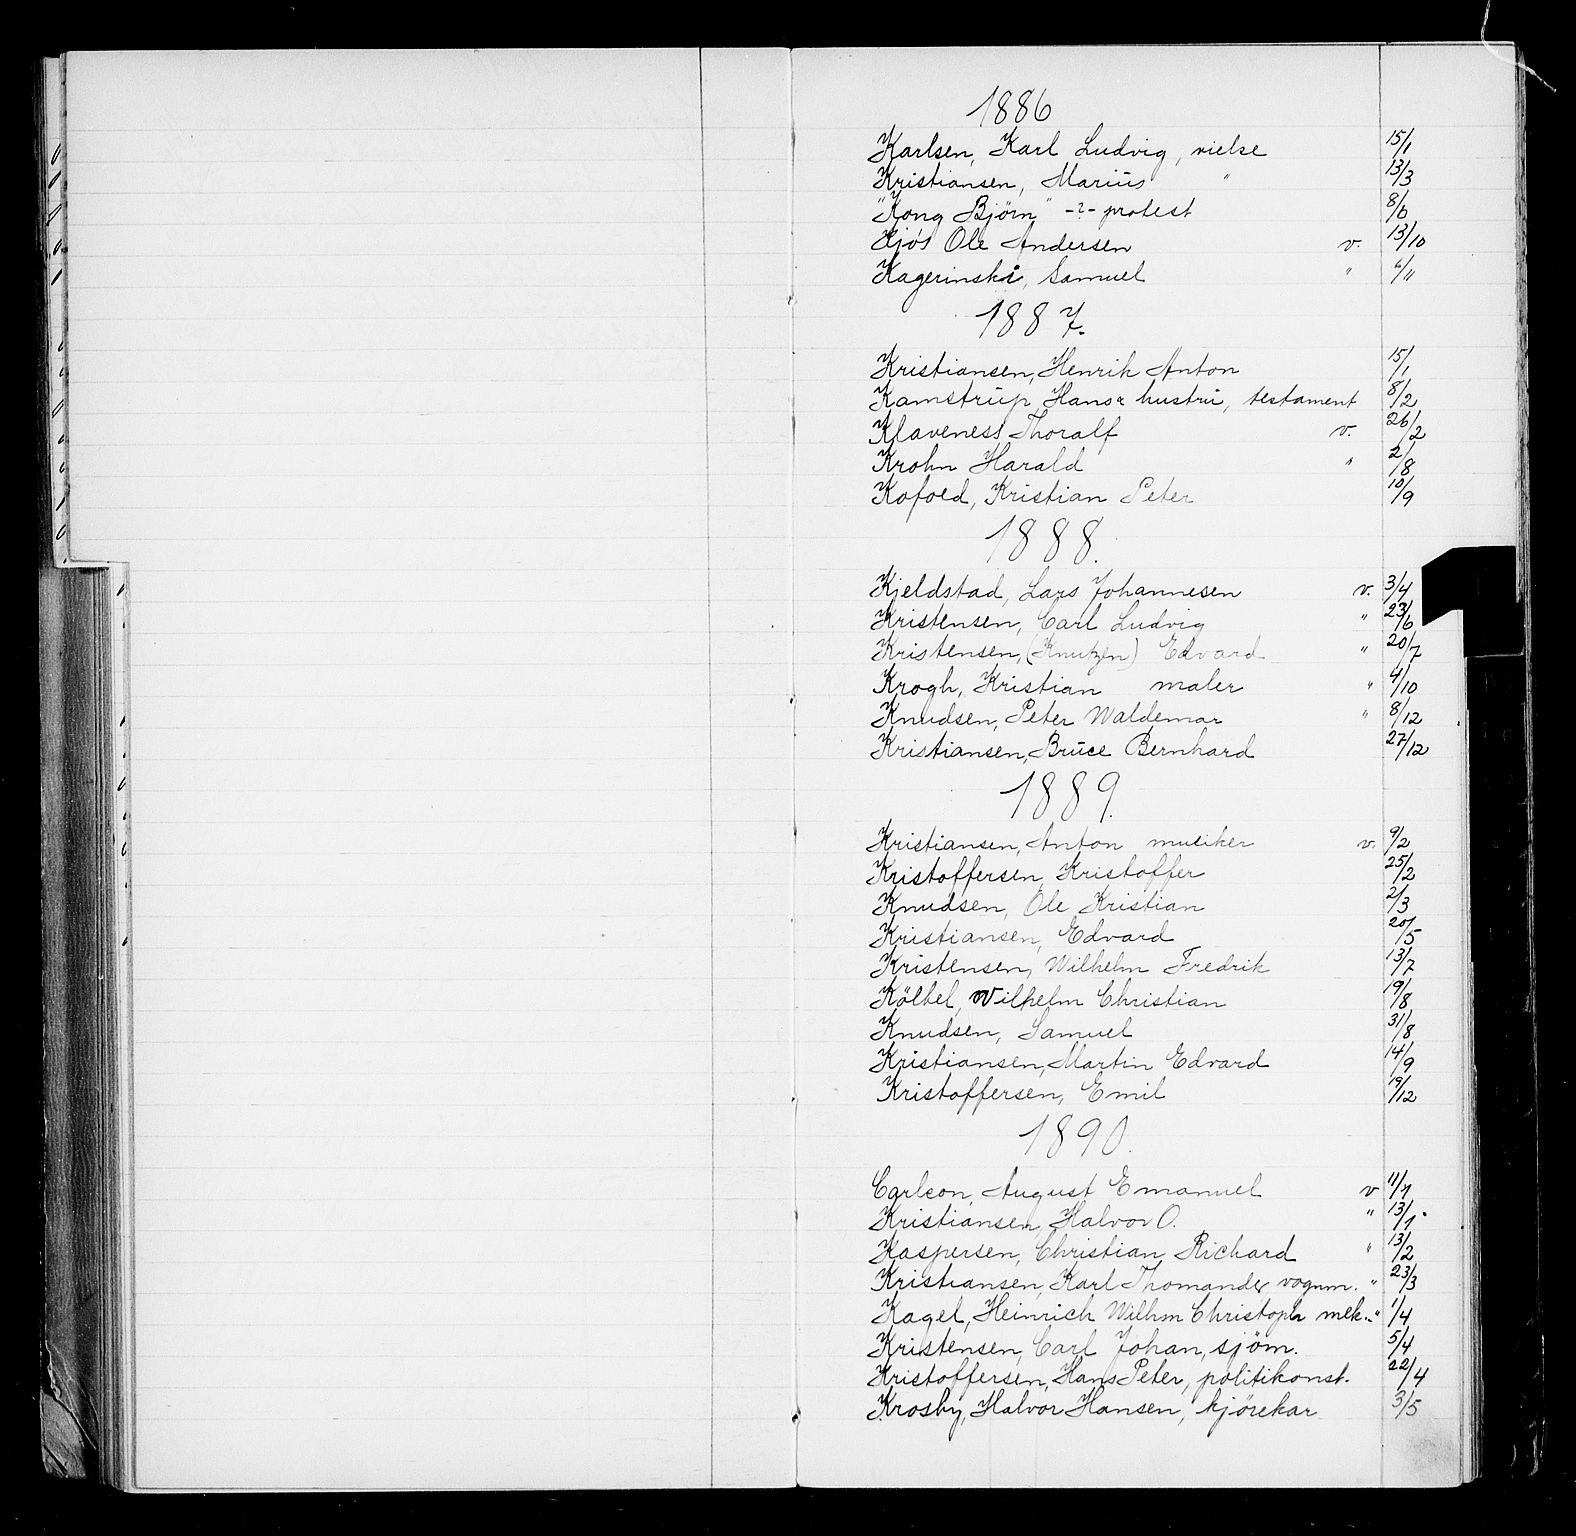 1886
Karlsen, Karl Ludvig, vielse 15/1
Kristiansen, Marius " 13/3
"Kong Bjørn" -?- protest 8/6
Kjös Ole Andersen v. 13/10
Kagerinski, Samuel " 6/11
1887.
Kristiansen, Henrik Anton 15/1
Kamstrup, Hans & hustru, testament 8/2
Klaveness Thoralf v. 26/2
Krohn Harald " 2/8
Kofoed, Kristian Peter 10/9
1888.
Kjeldstad, Lars Johannesen v. 3/4
Kristensen, Carl Ludvig " 23/6
Kristensen, (Knutzen) Edvard " 20/7
Krogh, Kristian maler " 4/10
Knudsen, Peter Waldemar " 8/12
Kristiansen, Bruce Bernhard 27/12
1889.
Kristiansen, Anton musiker v. 9/2
Kristoffersen, Kristoffer 25/2
Knudsen, Ole Kristian 2/3
Kristiansen, Edvard 20/5
Kristensen, Wilhelm Fredrik 13/7
Kölbel, Wilhelm Christian 19/8
Knudsen, Samuel 31/8
Kristiansen, Martin Edvard 14/9
Kristoffersen, Emil 19/12
1890.
Carlson, August Emanuel v 11/1
Kristiansen, Halvor O. " 13/1
Kaspersen, Christian Richard " 13/2
Kristiansen, Karl Thomander, vognm. " 23/3
Kagel, Heinrich Wilhm Christoph mek. " 1/4
Kristensen, Carl Johan, sjöm. 5/4
Kristoffersen, Hans Peter, politikonst. 22/4
Krosby, Halvor Hansen, kjörekar 3/5